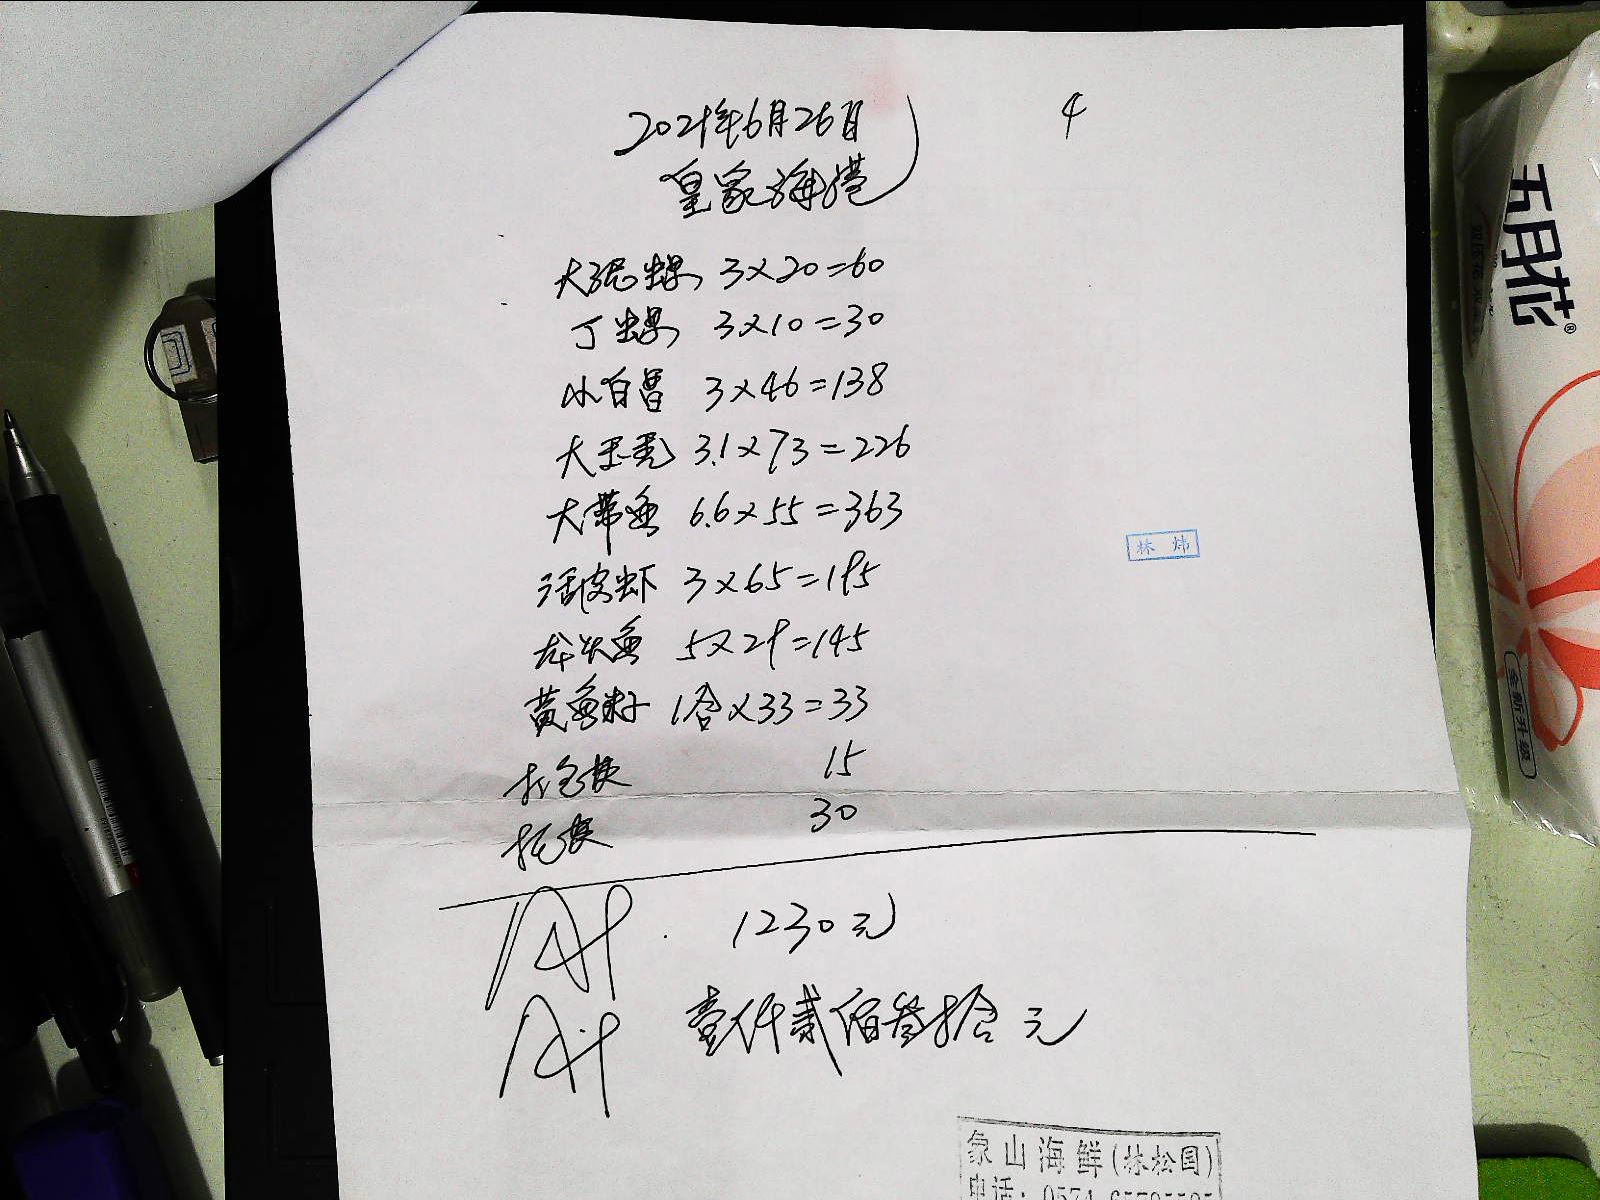 2021年6月26日
4
皇家海港
大泥螺 3×20=60
丁螺 3×10=30
小白昌 3×46=138
大玉秃 3.1×73=226
大带鱼 6.6×55=363
活皮虾 3×65=195
龙头鱼 5×29=145
黄鱼籽 1合×33=33
打包费 15
托费 30
1230元
壹仟贰佰叁拾元
林炜
象山海鲜(林松国)
电话:0574
五月花®
全新升级